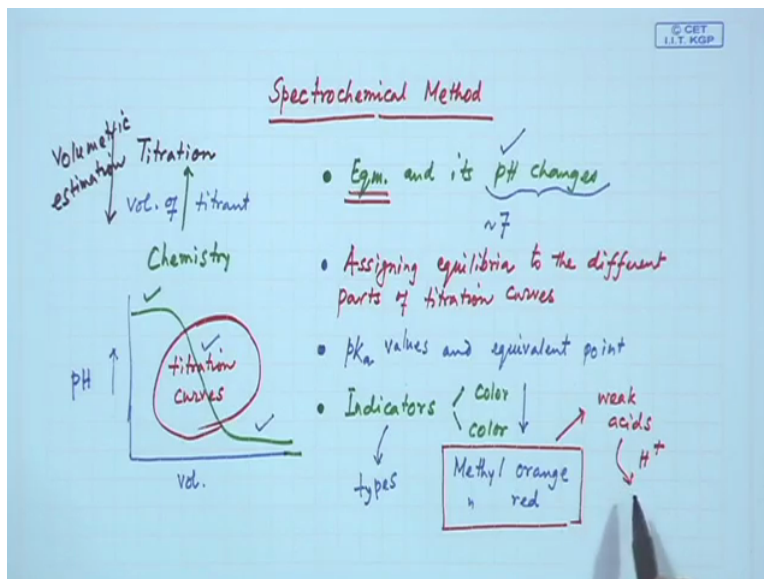 © CET
I.I.T. KGP
Spectrochemical Method
Volumetric
estimation
Titration
vol. of titrant
Chemistry
pH
titration
curves
vol.
• Eqm. and its pH changes
~7
• Assigning equilibria to the different
parts of titration curves
• pKa values and equivalent point
• Indicators
color
color
types
Methyl orange
" red
weak
acids
H+